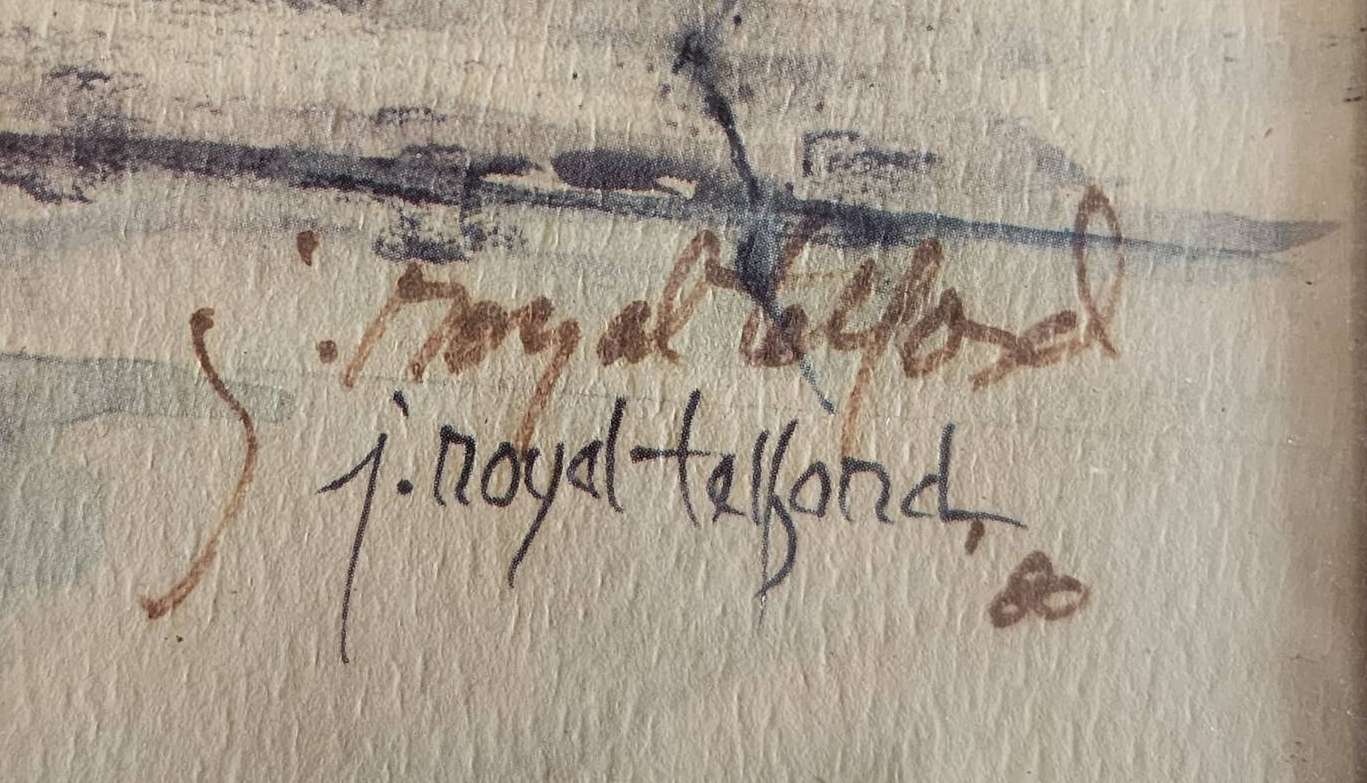 j. royal telford
j. royal telford
'80